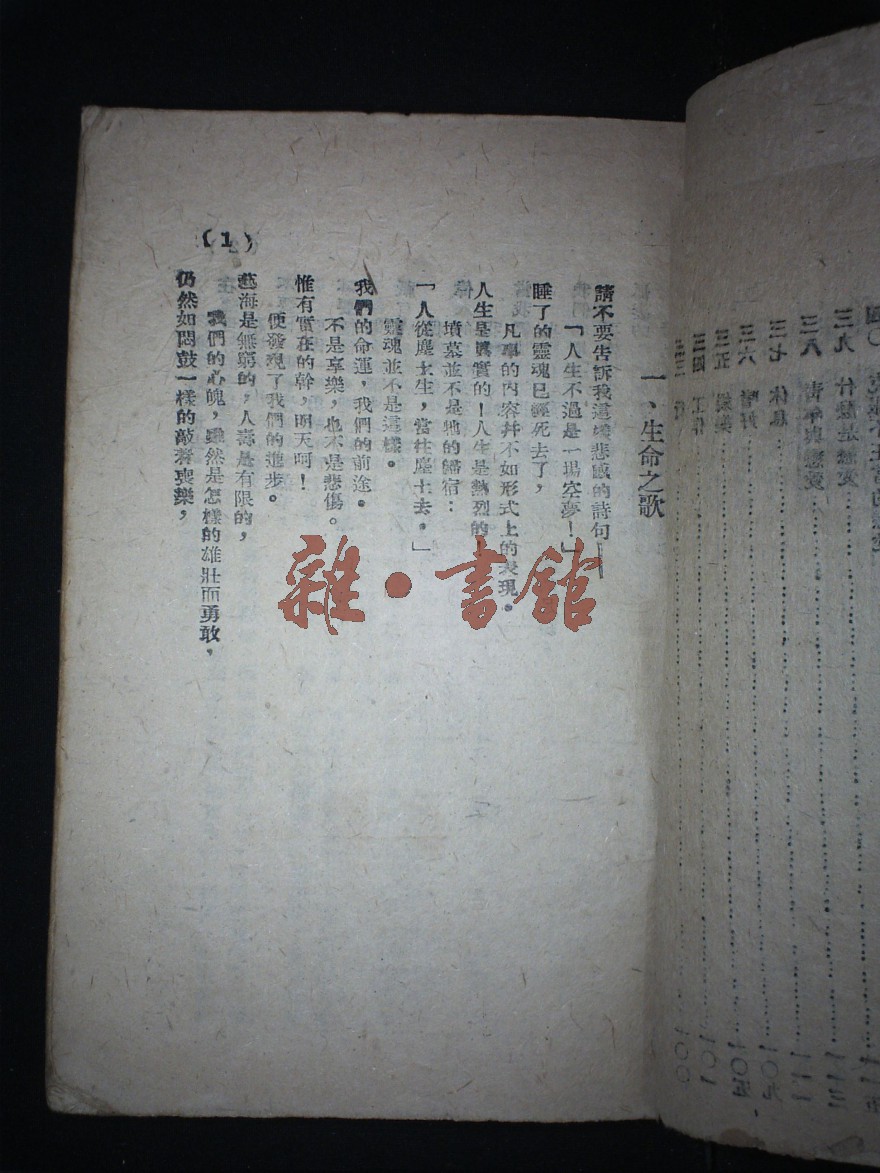 一、生命之歌
請不要告訴我這樣悲慼的詩句——
「人生不過是一場空夢！」
睡了的靈魂已經死去了，
凡事的內容并不如形式上的表現。
人生是眞實的！人生是熱烈的！
墳墓並不是牠的歸宿：
「人從塵土生，當往塵土去。」
靈魂並不是這樣。
我們的命運，我們的前途。
不是享樂，也不是悲傷。
惟有實在的幹，明天呵！
便發現了我們的進步。
藝海是無窮的，人壽是有限的，
我們的心魄，雖然是怎樣的雄壯而勇敢，
仍然如悶鼓一樣的敲着喪樂，
(1)
雜·書館
三四 工作 101
三六 嗜好
三七 休息
三八 青年與戀愛
三九 什麼是戀愛